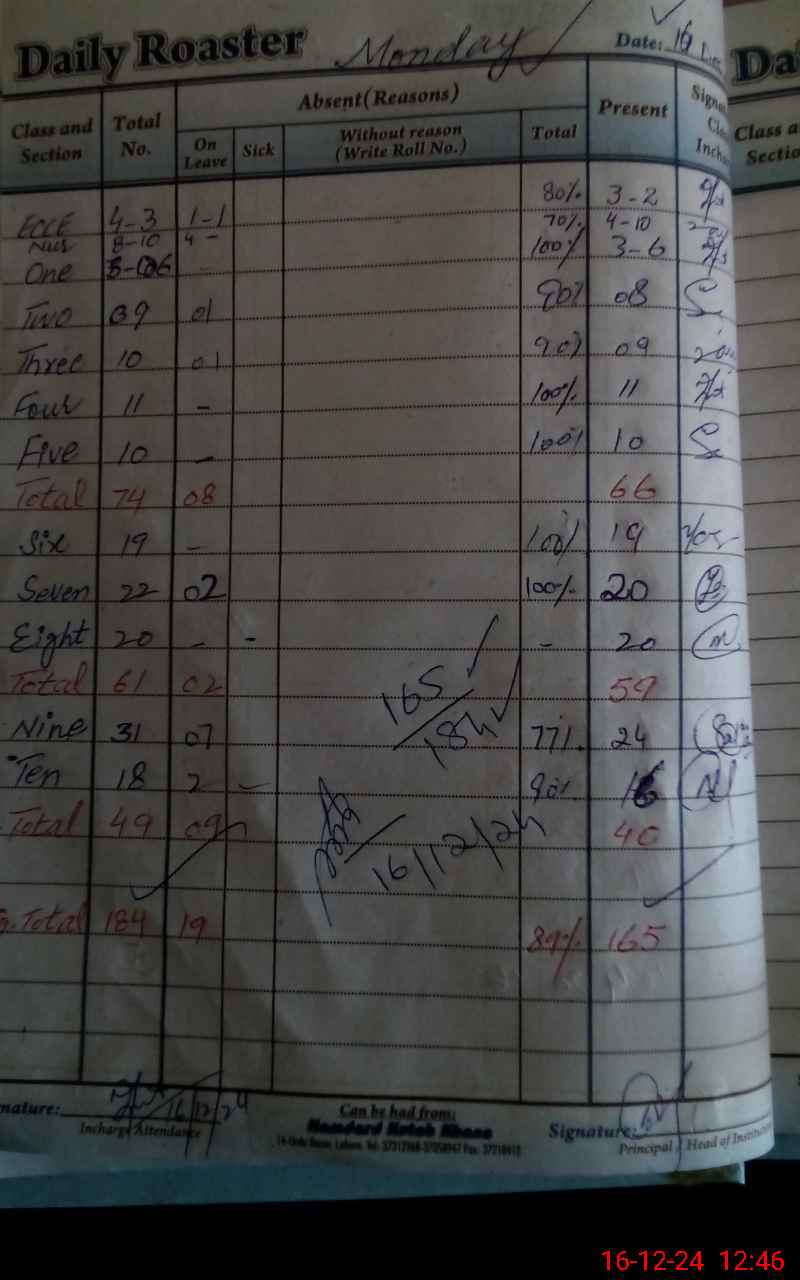 Daily Roaster Monday Date: 16 Dec
Class and Section Total No. Absent(Reasons) Present
On Leave Sick Without reason (Write Roll No.) Total
ECCE 4-3 1-1 80% 3-2
Nur 8-10 4 - 70% 4-10
One 3-06 - 100% 3-6
Two 09 01 90% 08
Three 10 01 90% 09
Four 11 - 100% 11
Five 10 - 100% 10
Total 74 08 66
Six 19 - 100% 19
Seven 22 02 100% 20
Eight 20 - - - 20
Total 61 02 59
165
184
Nine 31 07 77% 24
Ten 18 2 - 90% 16
Total 49 09 40
16/12/24
G.Total 184 19 89% 165
nature: 16/12/24
Incharge Attendance
Can be had from:
Hamdard Kutab Khana
Signature:
Principal / Head of Institution
Da
Class a
Sectio
16-12-24 12:46